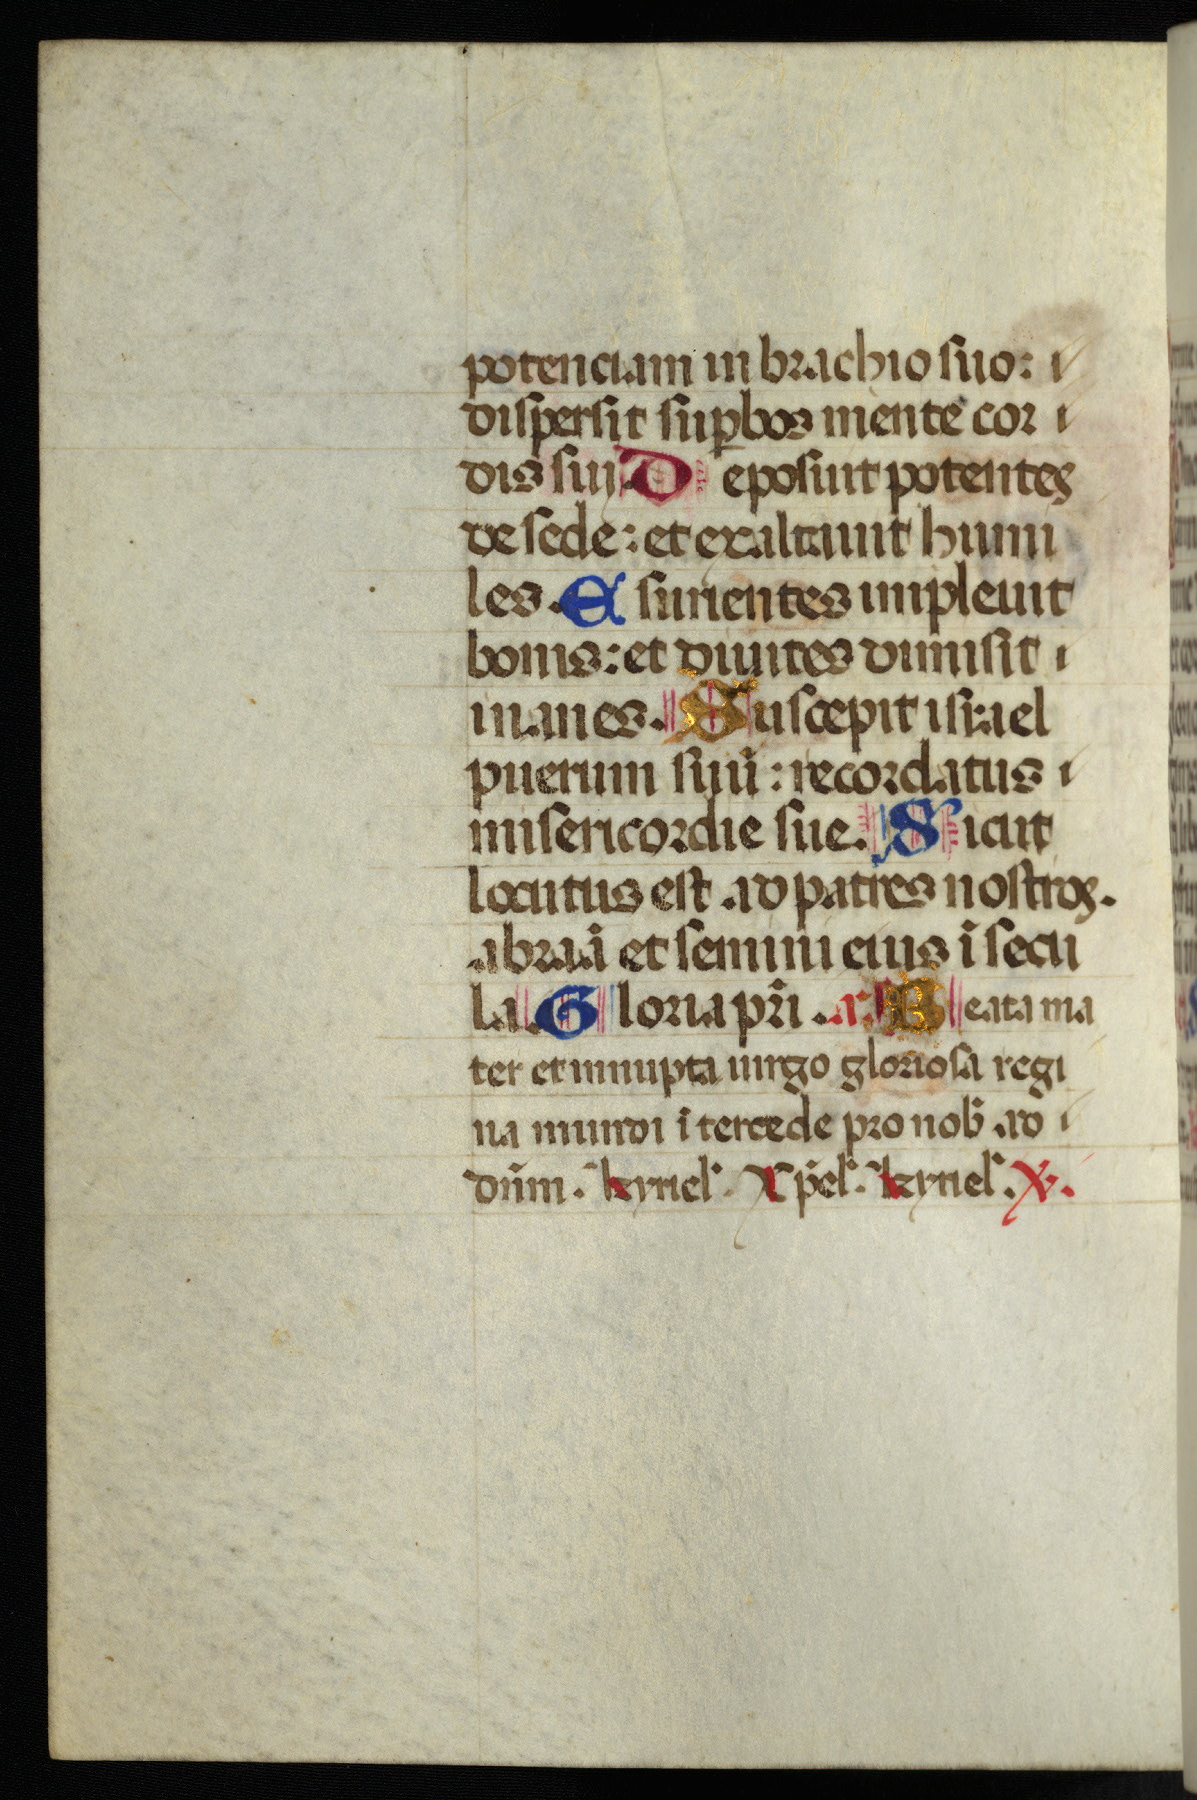 potenciam in brachio suo: i
dispersit sup̱bos mente cor i
dis sui. Deposuit potentes
de sede: et exaltauit humi
les. Esurientes impleuit
bonis: et diuites dimisit i
inanes. Suscepit israel
puerum suū: recordatus i
misericordie sue. Sicut
locutus est ad patres nostros.
abraā et semini eius ī secu
la. Gloria pr̄i. a. Beata ma
ter et innupta uirgo gloriosa regi
na mundi ītercede pro nob̄ ad i
dūm. kyriel̛. Xp̄el̛. kyriel̛. V.